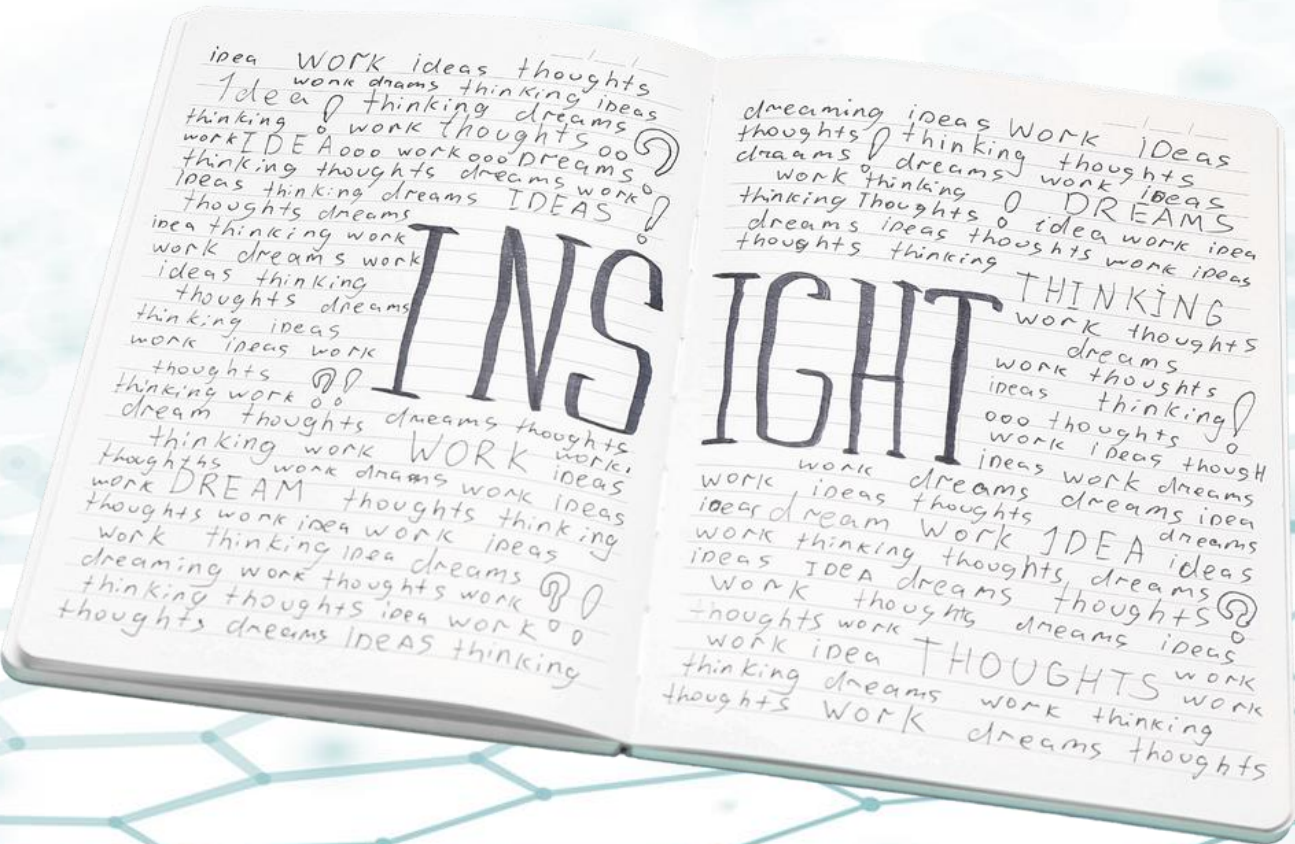 idea WORK ideas thoughts
work drams thinking ideas
Idea! thinking dreams
thinking work thoughts oo?
work IDEA ooo work ooo Dreams
thinking thoughts dreams work!
ideas thinking dreams IDEAS
thoughts dreams
idea thinking work
work dreams work
ideas thinking
thoughts dreams
thinking ideas
work ideas work
thoughts
thinking work ?!
dream thoughts dreams thoughts
thinking work WORK work.
thoughths work drams work ideas
work DREAM thoughts thinking
thoughts work idea work ideas
work thinking idea dreams
dreaming work thoughts work ?!
thinking thoughts idea work
thoughts dreams IDEAS thinking
INS
dreaming ideas Work iDeas
thoughts! thinking thoughts
draams dreams work ideas
work thinking DREAMS
thinking Thoughts! idea work idea
dreams ideas thoughts work ideas
thoughts thinking THINKING
IGHT
work thoughts
dreams
work thoughts
ideas thinking!
ooo thoughts
work ideas though
ideas work dreams
work dreams dreams idea
work ideas thoughts dreams
ideas dream Work IDEA ideas
work thinking thoughts, dreams?
ideas IDEA dreams thoughts
Work thoughts dreams ideas
thoughts work THOUGHTS work
work idea work
thinking dreams work thinking
thoughts WORK dreams thoughts